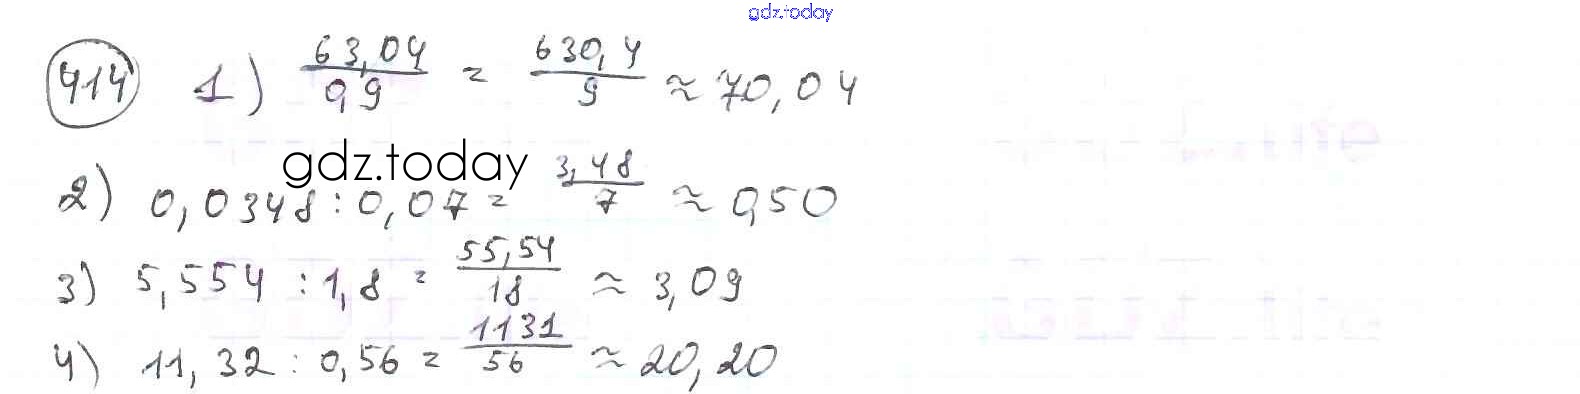 gdz.today
414 1) 63,04/0,9 = 630,4/9 ≈ 70,04
gdz.today
2) 0,0348 : 0,07 = 3,48/7 ≈ 0,50
3) 5,554 : 1,8 = 55,54/18 ≈ 3,09
4) 11,32 : 0,56 = 1131/56 ≈ 20,20